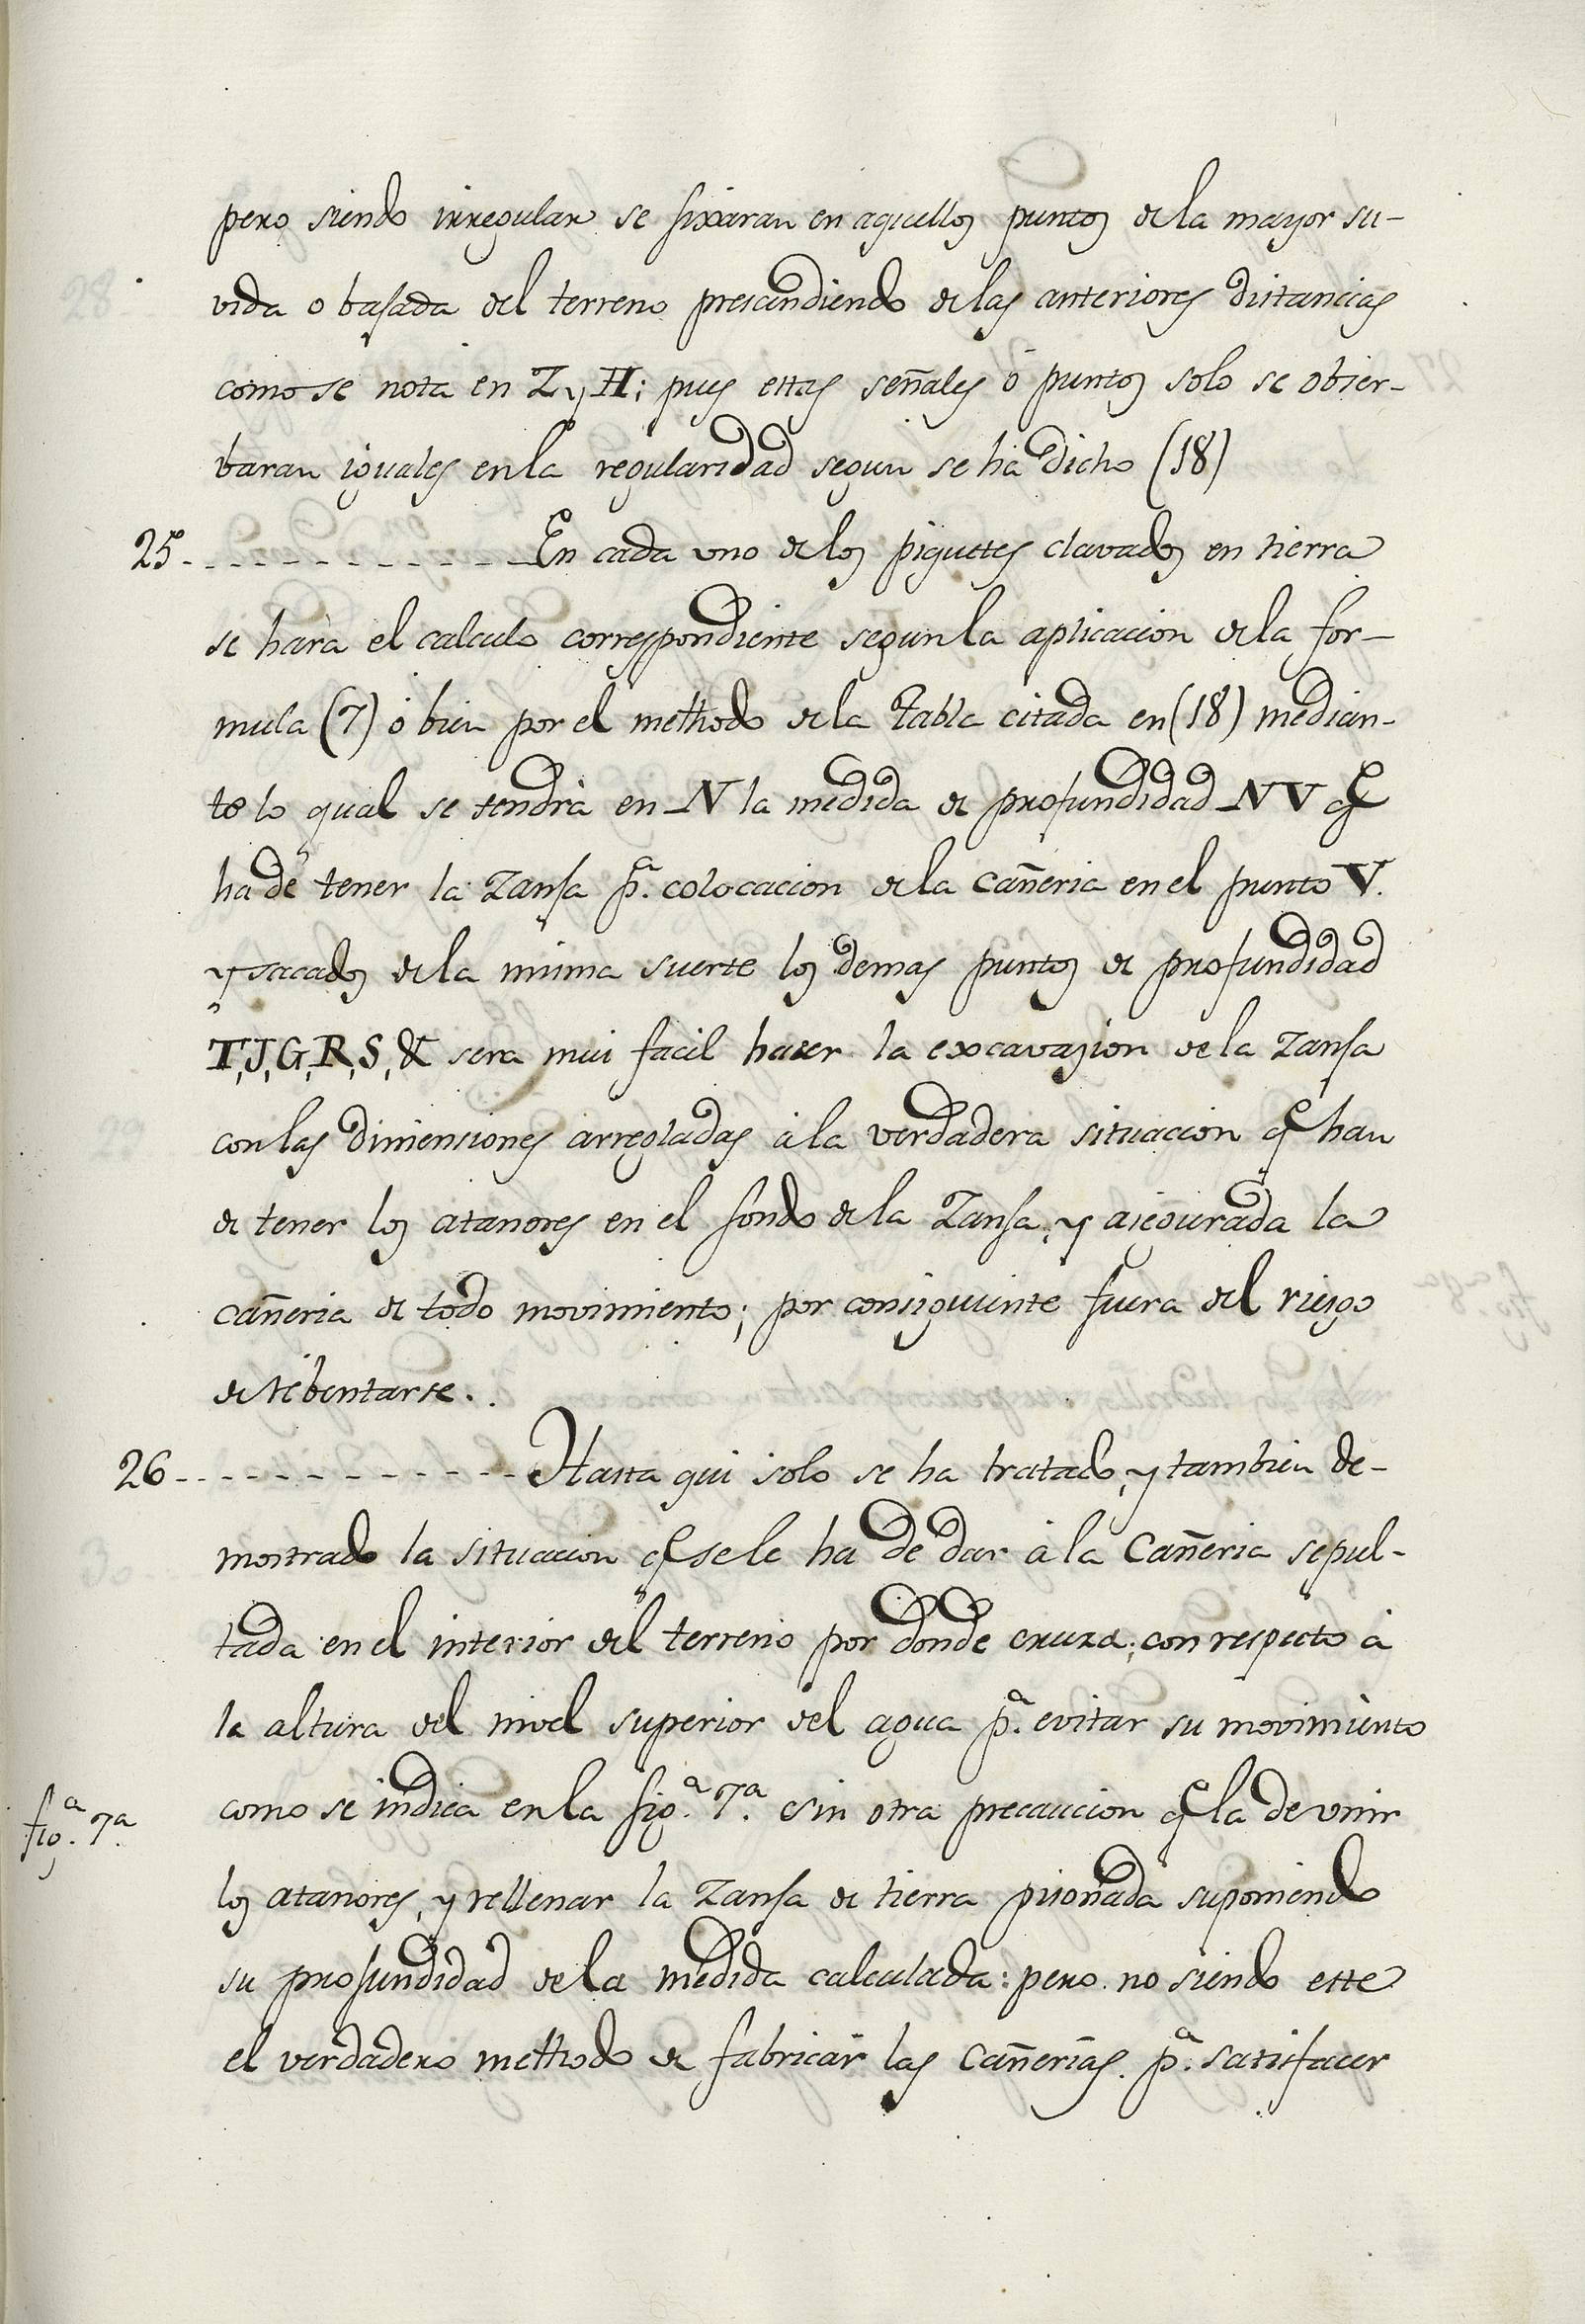 pero siendo irregular se fixaran en aquellos puntos de la mayor su-
vida o basada del terreno prescindiendo de las anteriores distancias
como se nota en Z y H; pues estas señales ó puntos solo se obser-
baran iguales en la regularidad segun se ha dicho (18)
25 - - - - - - - - - - - - En cada uno de los piquetes clavados en tierra
se hará el calculo correspondiente segun la aplicacion de la for-
mula (7) ó bien por el methodo de la Tabla citada en (18) median-
te lo qual se tendrà en N la medida de profundidad NV q̃
ha de tener la Zansa p.ª colocacion de la cañeria en el punto V.
y sacados de la misma suerte los demas puntos de profundidad
T, J, G, R, S, & sera mui facil hazer la excavazion de la Zansa
con las dimensiones arregladas à la verdadera situacion q̃ han
de tener los atanores en el fondo de la Zansa, y asegurada la
cañeria de todo movimiento; por consiguiente fuera del riesgo
de rebentarse.
26 - - - - - - - - - - - - Hasta qui solo se ha tratado, y tambien de-
mostrado la situacion q̃ se le ha de dar à la Cañeria sepul-
tada en el interior del terreno por donde cruza; con respecto à
la altura del nivel superior del agua p.ª evitar su movimiento
como se indica en la fig.ª 7.ª sin otra precaucion q̃ la de vnir
fig.ª 7.ª
los atanores, y rellenar la Zansa de tierra pisonada suponiendo
su profundidad de la medida calculada: pero no siendo este
el verdadero methodo de fabricar las cañerias. p.ª satisfacer